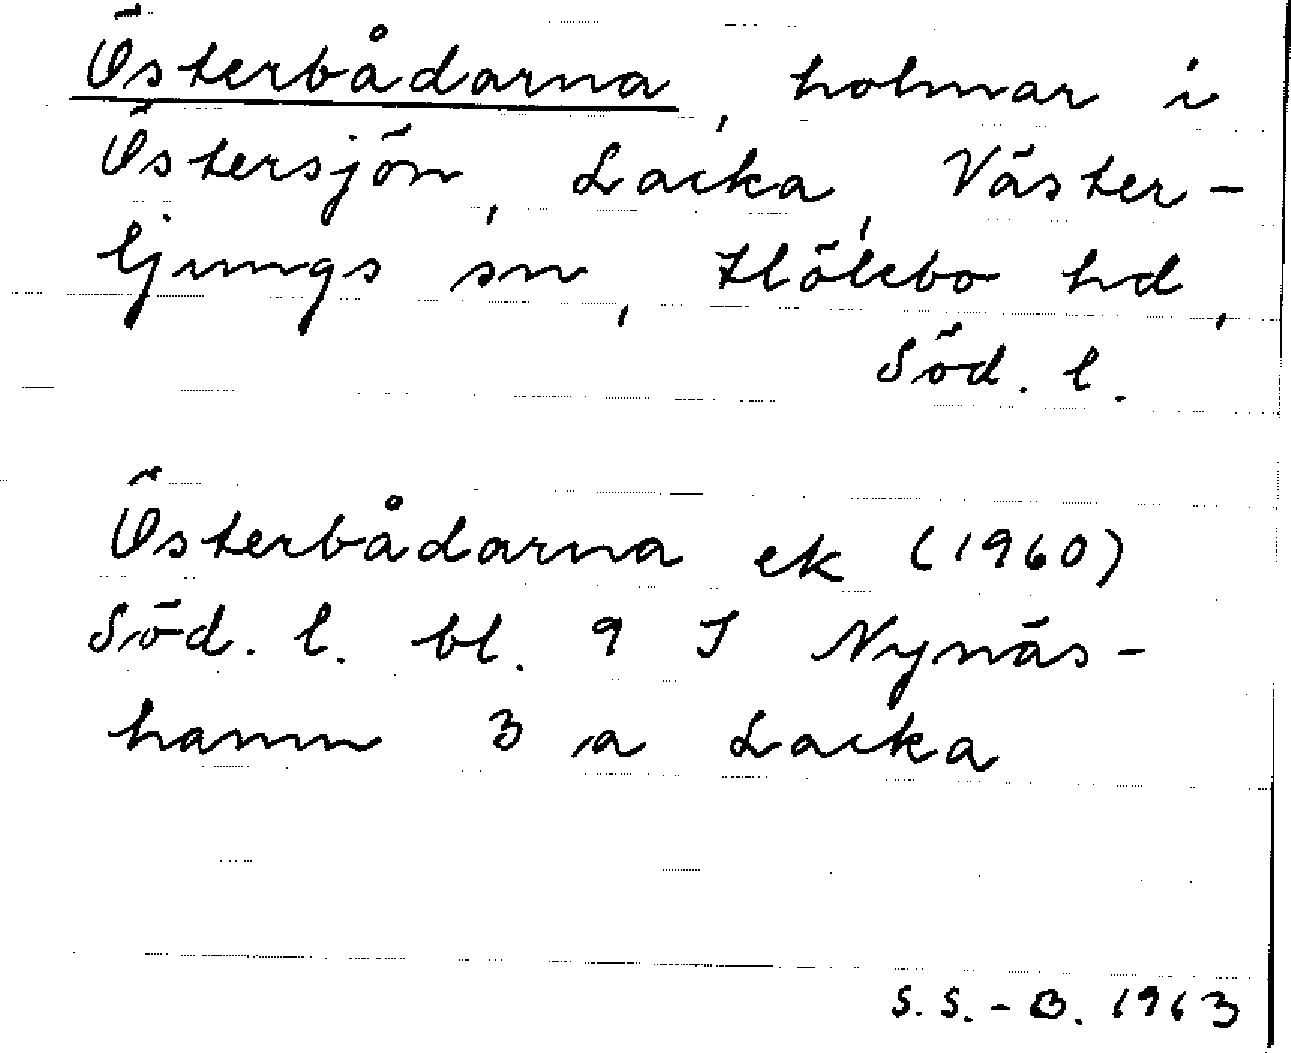 Österbådarna, holmar i
Östersjön, Lacka, Väster-
ljungs sn, Hölebo hd,
Söd. l.
Österbådarna ek (1960)
Söd. l. bl. 9 J Nynäs-
hamn 3 a Lacka
S. S.-B. 1963